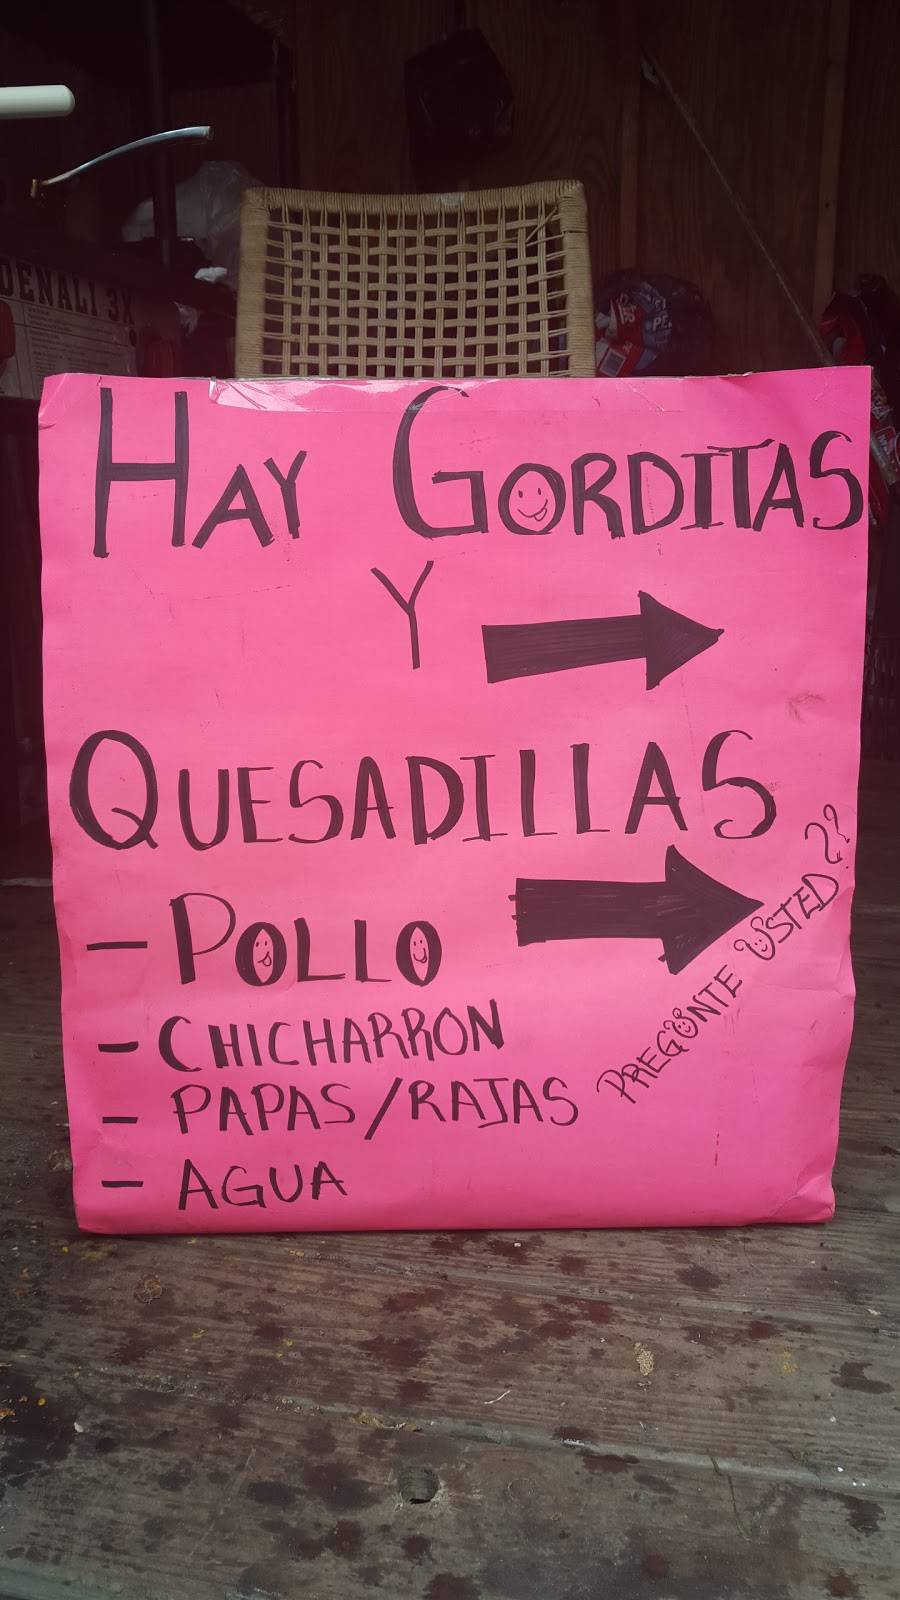 DENALI 3X
HAY GORDITAS
Y
QUESADILLAS
- POLLO
- CHICHARRON
- PAPAS/RAJAS
- AGUA
PREGUNTE USTED??